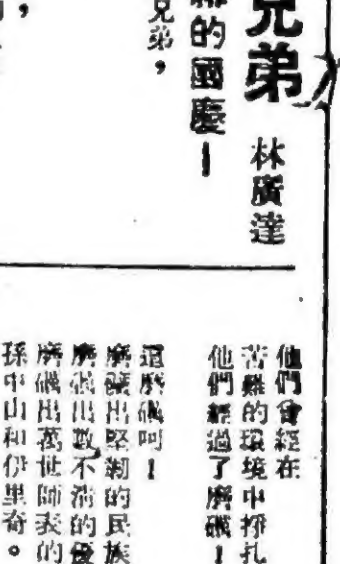 兄弟 林廣達
的國慶—
兄弟，
，
他們曾經在
苦難的環境中掙扎
他們經過了磨礪！
這磨礪呵！
磨礪出堅韌的民族
磨礪出數不清的優
磨礪出萬世師表的
孫中山和伊里奇。